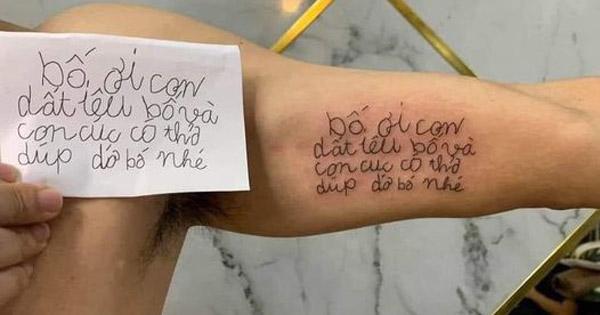 bố ơi con
dất lêu bố và
con cuc có thở
dúp dớ bố nhé
bố ơi con
dất lêu bố và
con cuc có thở
dúp dớ bố nhé